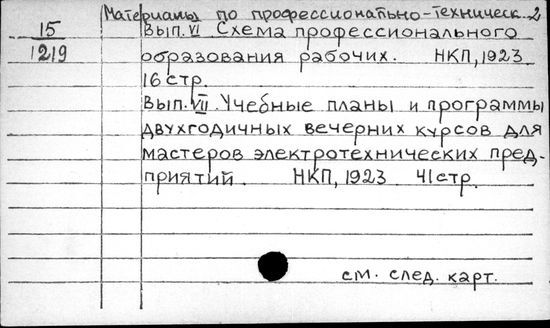 Материалы по профессионально-техническ. 2
15
1219
Вып. VI Схема профессионального
образования рабочих. НКП, 1923
16 стр.
Вып. VII. Учебные планы и программы
двухгодичных вечерних курсов для
мастеров электротехнических пред-
приятий. НКП, 1923 41 стр.
см. след. карт.